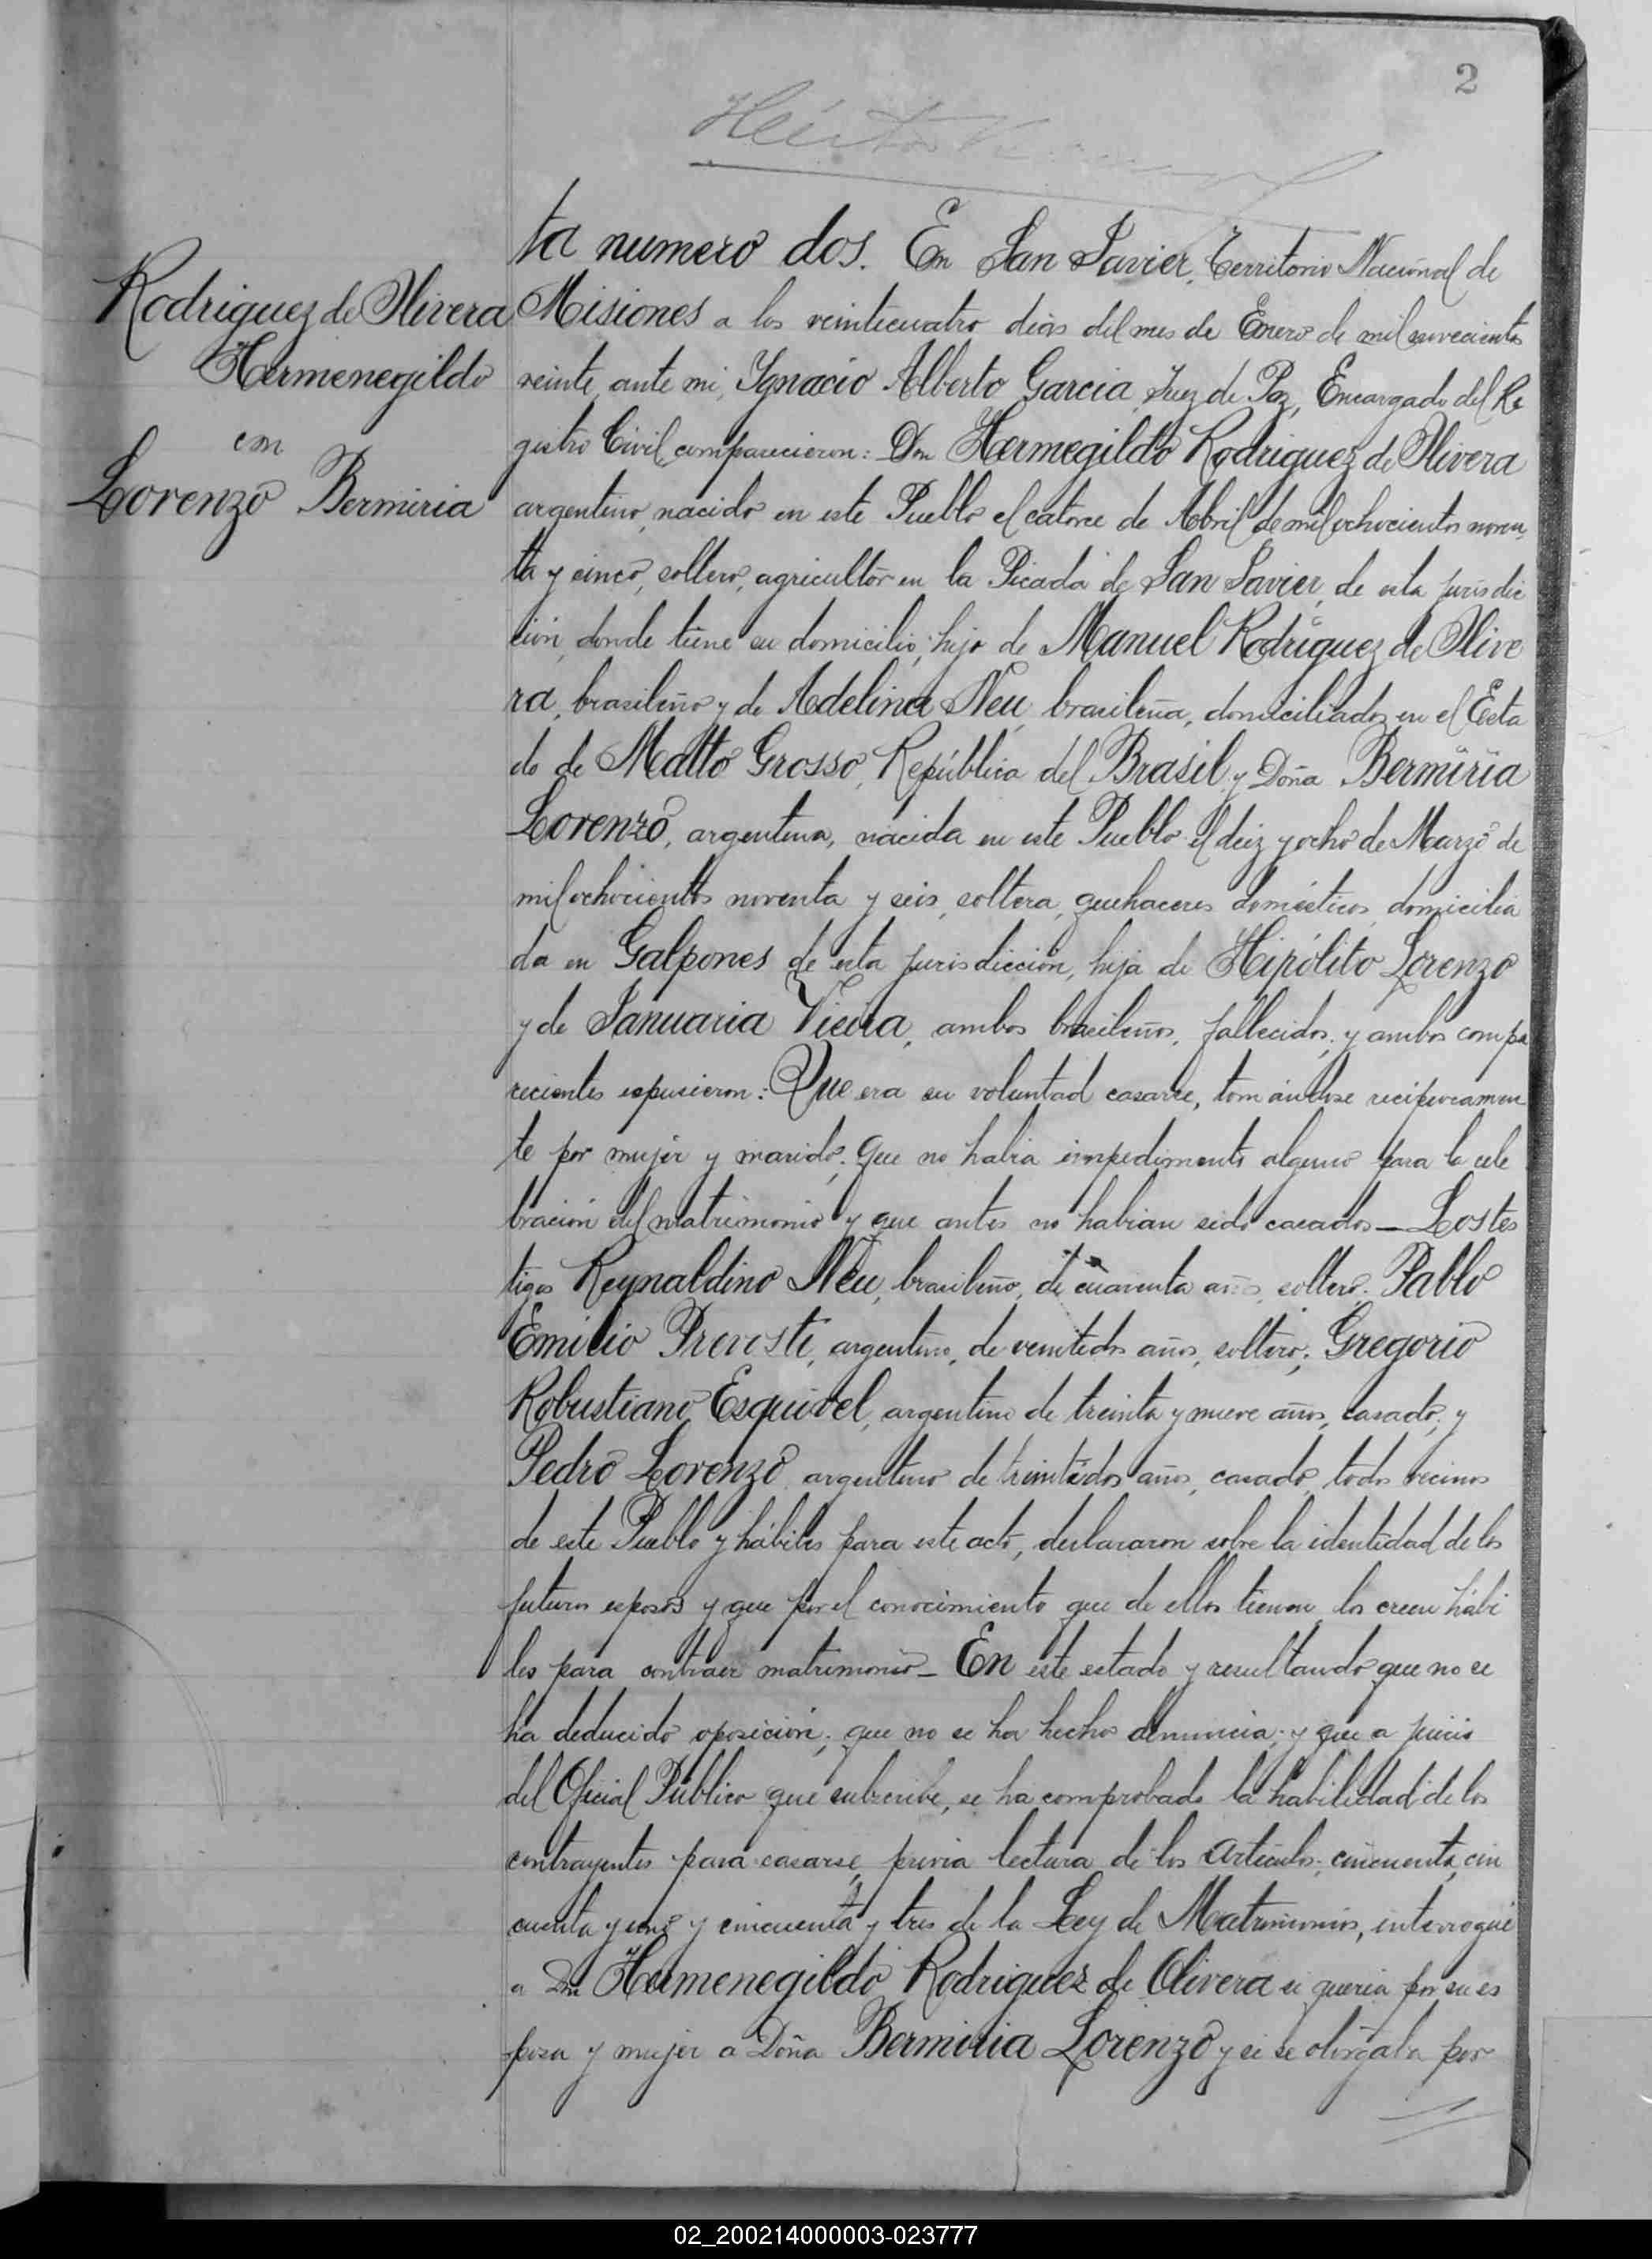 2
Rodriguez de Olivera
Hermenegildo
con
Lorenzo Bermiria
ta numero dos. En San Javier, Territorio Nacional de
Misiones a los veinticuatro dias del mes de Enero de mil novecientos
veinte, ante mi, Ygnacio Alberto Garcia, Juez de Paz, Encargado del Re
gistro Civil, comparecieron: Don Hermegildo Rodriguez de Olivera
argentino, nacido en este Pueblo el catorce de Abril de mil ochocientos noven
ta y cinco, soltero, agricultor en la Picada de San Javier, de esta jurisdic
ción, donde tiene su domicilio, hijo de Manuel Rodriguez de Olive
ra, brasileño y de Adelina Neu, brasileña, domiciliados en el Esta
do de Matto Grosso, República del Brasil y Doña Bermiria
Lorenzo, argentina, nacida en este Pueblo el diez y ocho de Marzo de
mil ochocientos noventa y seis, soltera, quehaceres domésticos, domicilia
da en Galpones de esta jurisdicción, hija de Hipólito Lorenzo
y de Januaria Vieira, ambos brasileños, fallecidos; y ambos compa
recientes expusieron: Que era su voluntad casarse, tomándose recíprocamen
te por mujer y marido; que no habia impedimento alguno para la cele
bración del matrimonio y que antes no habian sido casados — Los tes
tigos Reynaldino Neu, brasileño, de cuarenta años, soltero; Pablo
Emilio Prevosti, argentino, de veintedos años, soltero; Gregorio
Robustiano Esquivel, argentino de treinta y nueve años, casado; y
Pedro Lorenzo argentino de treintidos años, casado, todos vecinos
de este Pueblo y hábiles para este acto, declararon sobre la identidad de los
futuros esposos y que por el conocimiento que de ellos tienen los creen hábi
les para contraer matrimonio — En este estado y resultando que no se
ha deducido oposición; que no se ha hecho denuncia; y que a juicio
del Oficial Público que subscribe, se ha comprobado la habilidad de los
contrayentes para casarse, previa lectura de los articulos, cincuenta, cin
cuenta y uno y cincuenta y tres de la Ley de Matrimonio, interrogué
a Don Hermenegildo Rodriguez de Olivera si queria por su es
posa y mujer a Doña Bermiria Lorenzo y si se otorgaba por
02_200214000003-023777